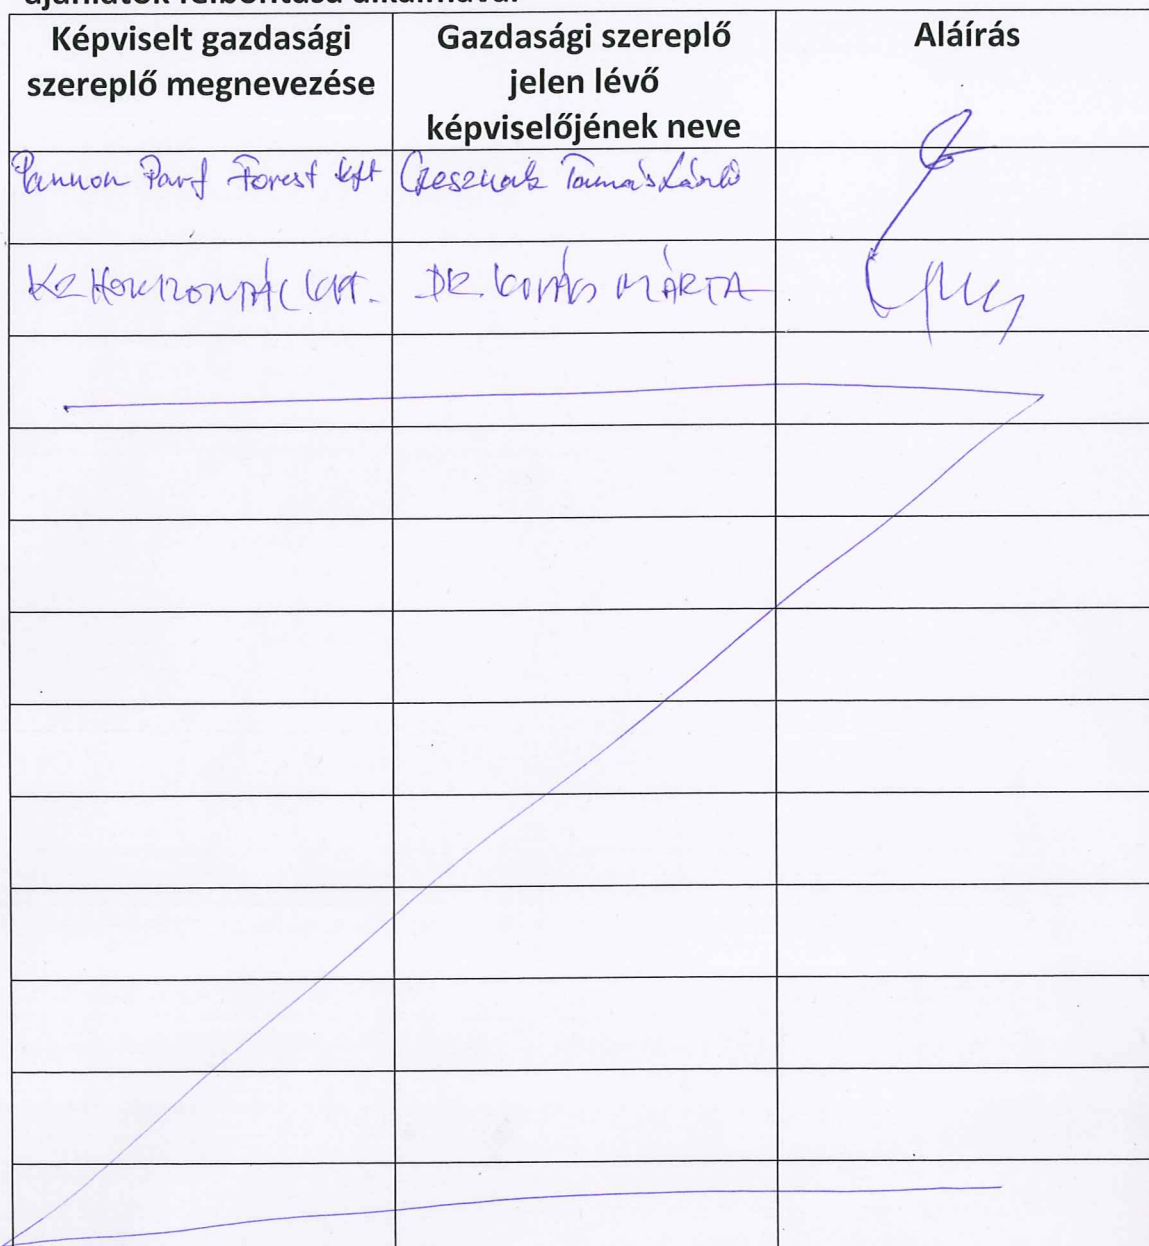 Képviselt gazdasági szereplő megnevezése
Gazdasági szereplő jelen lévő képviselőjének neve
Aláírás
Pannon Parf Forest kft
Csesznak Tamás László
KZ HORIZONTÁL KFT.
DR. KOVÁCS MÁRTA